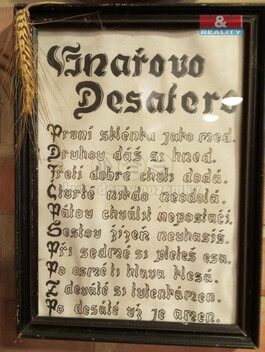 M&M
REALITY
Vinařovo
Desatero
První sklénka jako med.
Druhou dáš si hned.
Třetí dobré chuti dodá.
Čturté nikdo neodolá.
Pátou chválit nepostačí.
Šestou žízeň neuhasíš.
Při sedmé si pleteš esa.
Po osmé ti hlava klesá.
Po desáté už je amen.